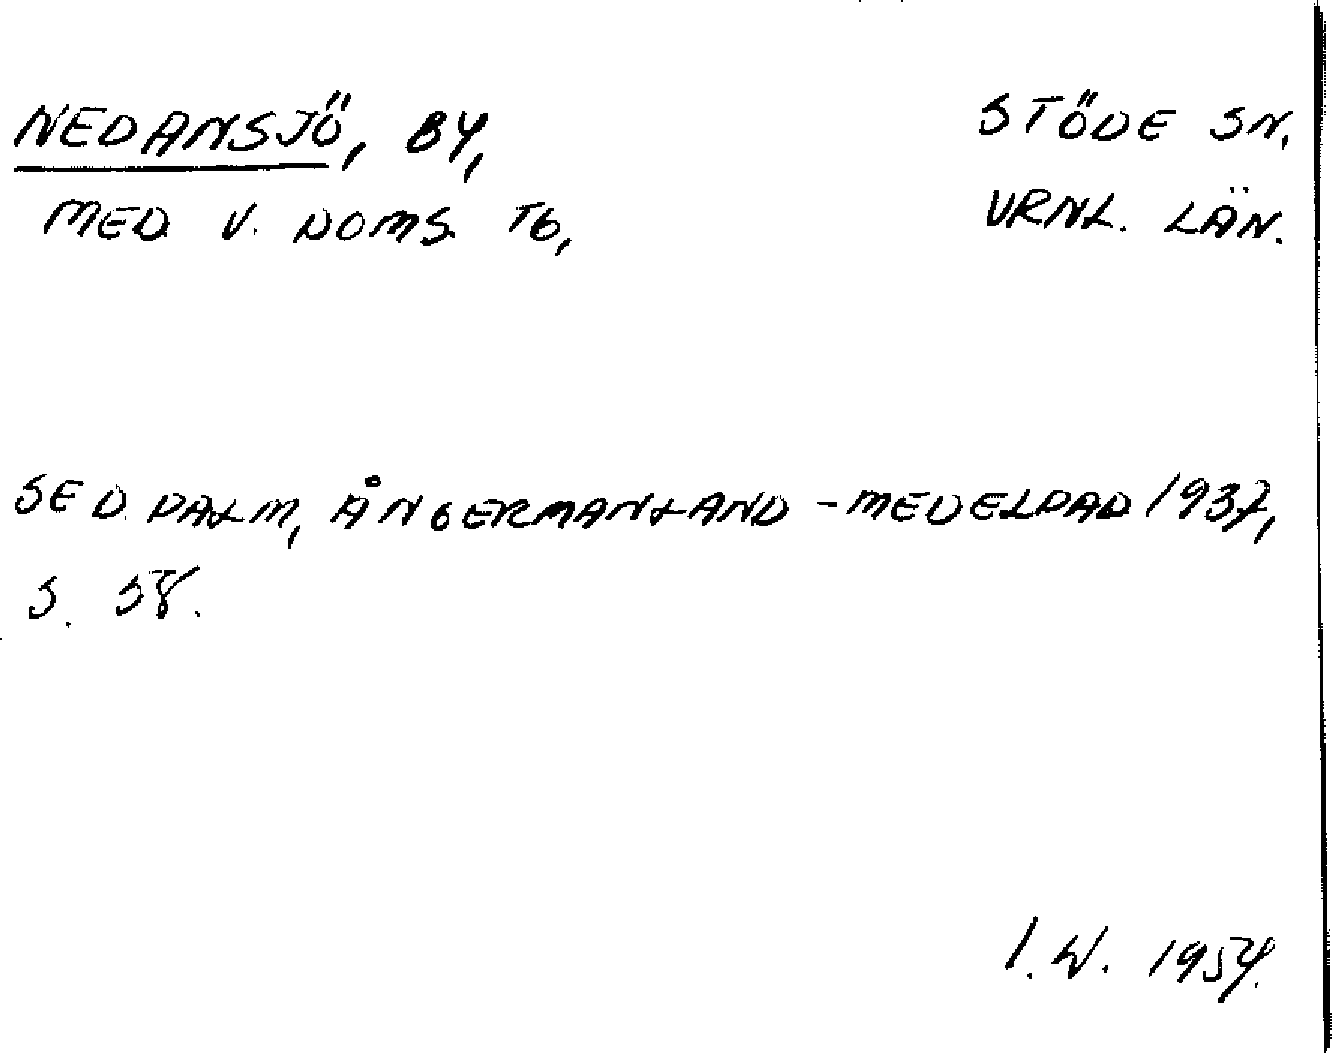 NEDANSJÖ, BY,
STÖDE SN.
MED. V. DOMS. TG,
VRNL. LÄN.
SE D. PALM, ÅNGERMANLAND - MEDELPAD 1937,
S. 58.
I. W. 1954.